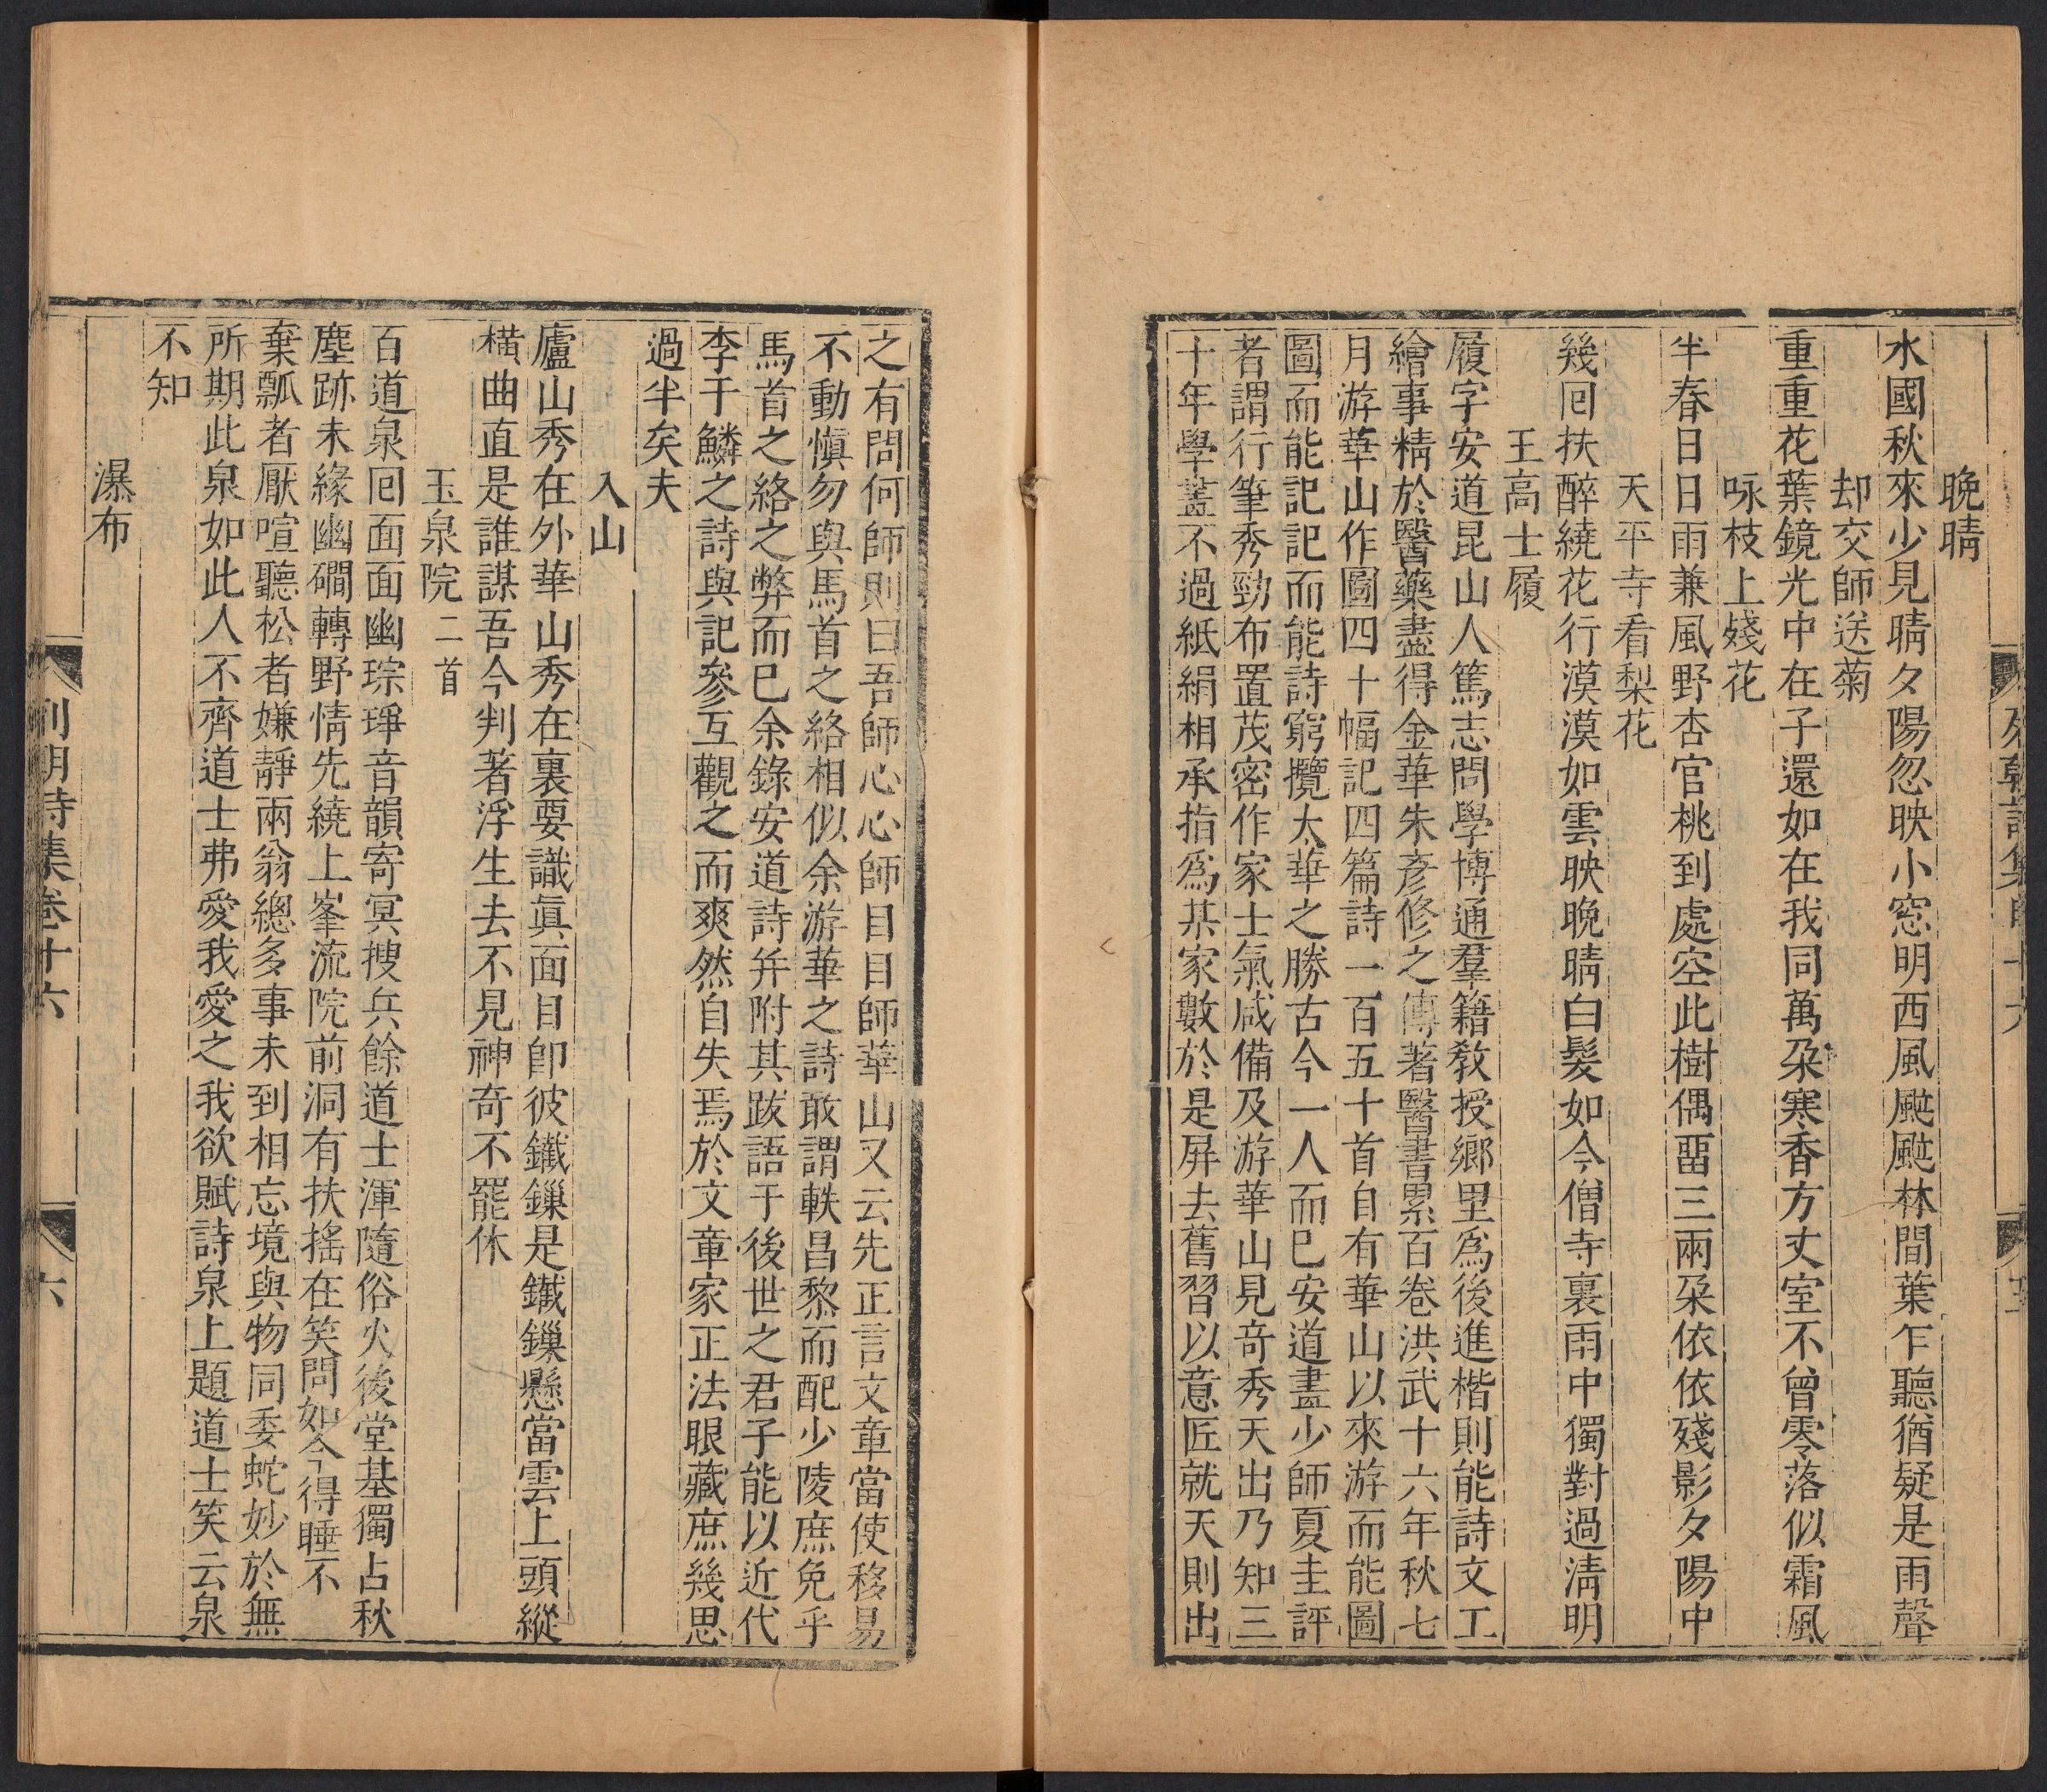 晚晴
水國秋來少見晴夕陽忽映小窓明西風颭颭林間葉乍聽猶疑是雨聲
却交師送菊
重重花葉鏡光中在子還如在我同萬朶寒香方丈室不曾零落似霜風
咏枝上殘花
半春日日雨兼風野杏官桃到處空此樹偶畱三兩朶依依殘影夕陽中
天平寺看梨花
幾囘扶醉繞花行漠漠如雲映晚晴白髮如今僧寺裏雨中獨對過淸明
王高士履
履字安道昆山人篤志問學博通羣籍敎授鄉里爲後進楷則能詩文工
繪事精於醫藥盡得金華朱彥修之傳著醫書累百卷洪武十六年秋七
月游華山作圖四十幅記四篇詩一百五十首自有華山以來游而能圖
圖而能記記而能詩窮攬太華之勝古今一人而已安道畫少師夏圭評
者謂行筆秀勁布置茂密作家士氣咸備及游華山見奇秀天出乃知三
十年學畫不過紙絹相承指爲某家數於是屛去舊習以意匠就天則出
之有問何師則曰吾師心心師目目師華山又云先正言文章當使移易
不動愼勿與馬首之絡相似余游華之詩敢謂軼昌黎而配少陵庶免乎
馬首之絡之弊而已余錄安道詩幷附其跋語于後世之君子能以近代
李于鱗之詩與記參互觀之而爽然自失焉於文章家正法眼藏庶幾思
過半矣夫
入山
廬山秀在外華山秀在裏要識眞面目卽彼鐵鏁是鐵鏁懸當雲上頭縱
橫曲直是誰謀吾今判著浮生去不見神奇不罷休
玉泉院二首
百道泉囘面面幽琮琤音韻寄冥搜兵餘道士渾隨俗火後堂基獨占秋
塵跡未緣幽磵轉野情先繞上峯流院前洞有扶搖在笑問如今得睡不
棄瓢者厭喧聽松者嫌靜兩翁總多事未到相忘境與物同委蛇妙於無
所期此泉如此人不齊道士弗愛我愛之我欲賦詩泉上題道士笑云泉
不知
瀑布
列朝詩集卷十六
六